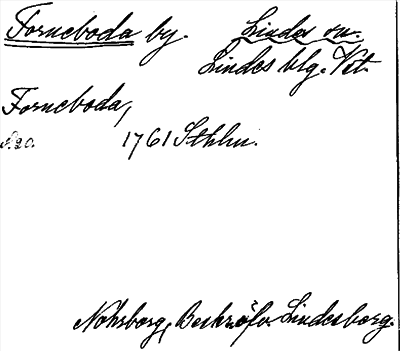 Forneboda by. Lindes sn.
Lindes blg. Vstm.
Forneboda,
S. 20. 1761 Sthlm.
Nohrborg, Beskrifn. Lindesborg.